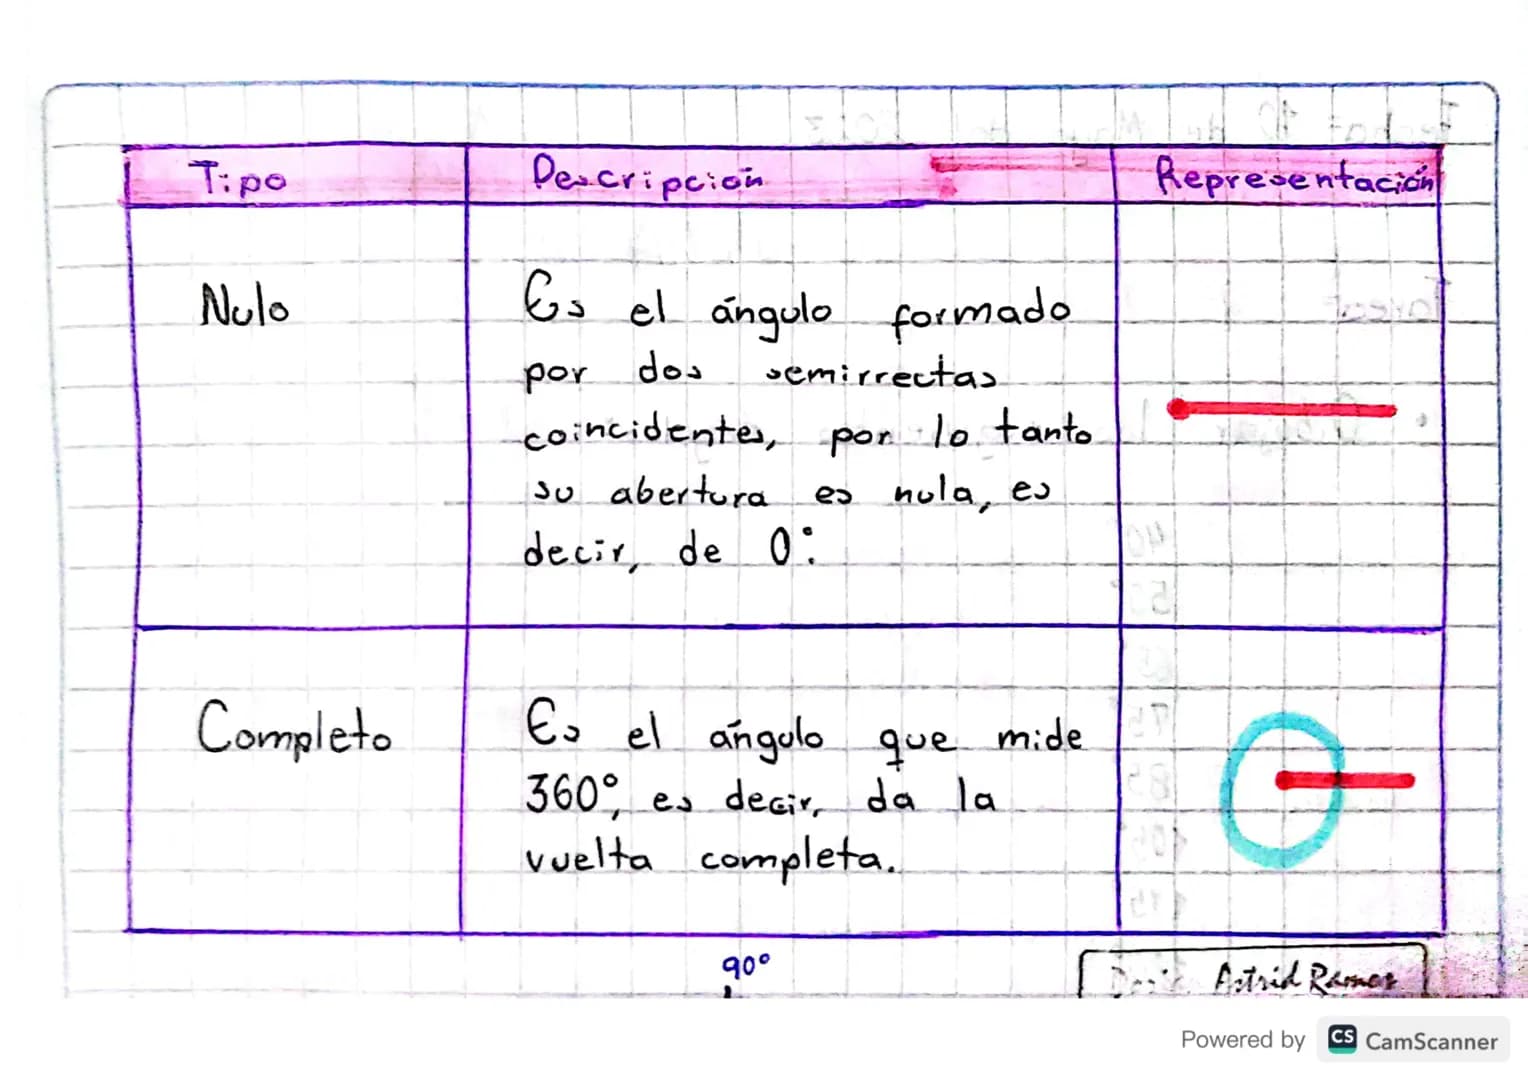 Tipo
Descripción
Representación
Nulo
Es el ángulo formado
por dos semirrectas
coincidentes, por lo tanto
su abertura es nula, es
decir, de 0°.
Completo
Es el ángulo que mide
360°, es decir, da la
vuelta completa.
90°
Astrid Ramos
Powered by CS CamScanner